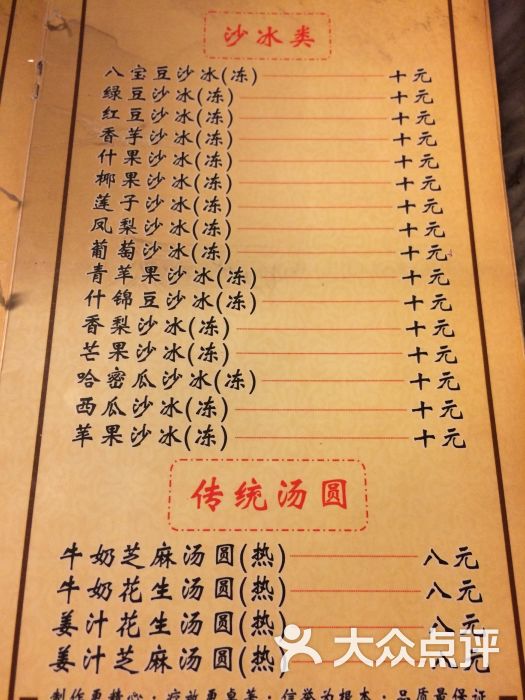 沙冰类
八宝豆沙冰(冻) 十元
绿豆沙冰(冻) 十元
红豆沙冰(冻) 十元
香芋沙冰(冻) 十元
什果沙冰(冻) 十元
椰果沙冰(冻) 十元
莲子沙冰(冻) 十元
凤梨沙冰(冻) 十元
葡萄沙冰(冻) 十元
青苹果沙冰(冻) 十元
什锦豆沙冰(冻) 十元
香梨沙冰(冻) 十元
芒果沙冰(冻) 十元
哈密瓜沙冰(冻) 十元
西瓜沙冰(冻) 十元
苹果沙冰(冻) 十元
传统汤圆
牛奶芝麻汤圆(热) 八元
牛奶花生汤圆(热) 八元
姜汁花生汤圆(热) 八元
姜汁芝麻汤圆(热) 八元
大众点评
制作更精心·疗效更卓著·信誉为根本·品质最保证